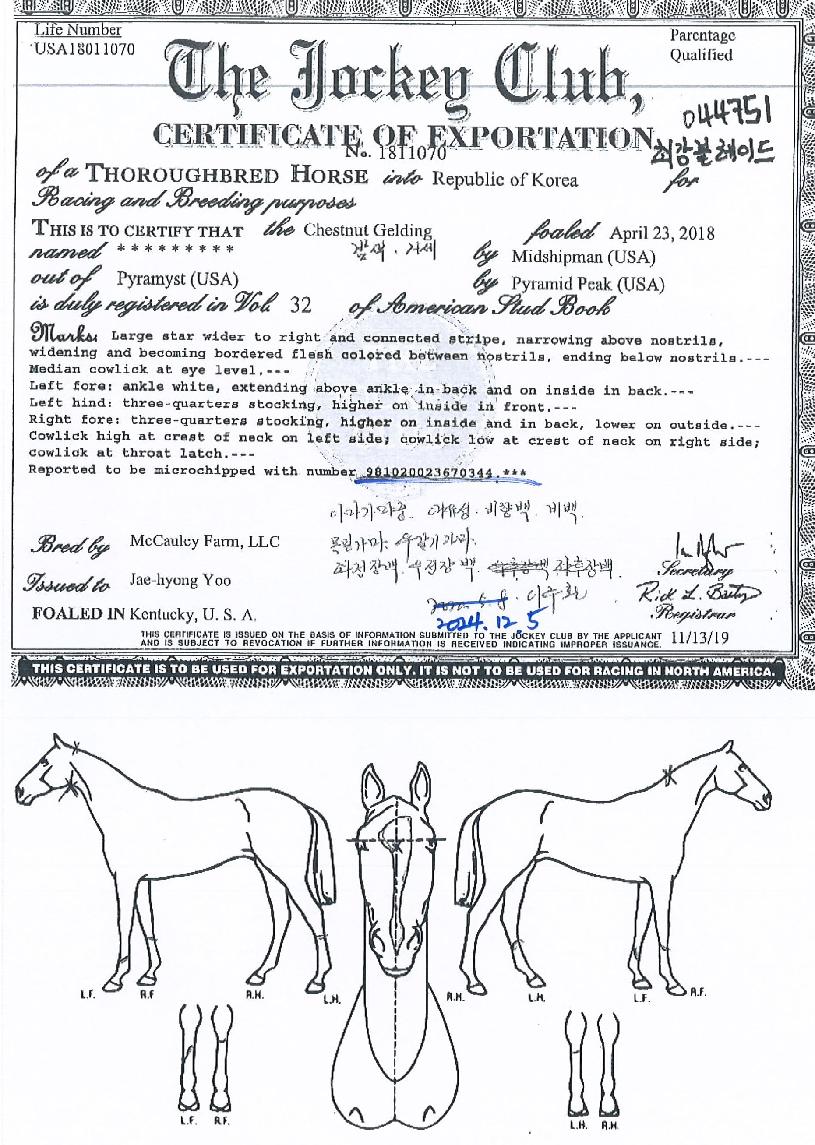 Life Number
USA18011070
Parentage
Qualified
The Jockey Club,
044751
CERTIFICATE OF EXPORTATION
최강블레이드
No. 1811070
of a THOROUGHBRED HORSE into Republic of Korea for
Racing and Breeding purposes
THIS IS TO CERTIFY THAT the Chestnut Gelding foaled April 23, 2018
named * * * * * * * * * by Midshipman (USA)
out of Pyramyst (USA) by Pyramid Peak (USA)
is duly registered in Vol. 32 of American Stud Book
Marks: Large star wider to right and connected stripe, narrowing above nostrils,
widening and becoming bordered flesh colored between nostrils, ending below nostrils.---
Median cowlick at eye level.---
Left fore: ankle white, extending above ankle in back and on inside in back.---
Left hind: three-quarters stocking, higher on inside in front.---
Right fore: three-quarters stocking, higher on inside and in back, lower on outside.---
Cowlick high at crest of neck on left side; cowlick low at crest of neck on right side;
cowlick at throat latch.---
Reported to be microchipped with number 981020023670344.***
비백
Bred by McCauley Farm, LLC
좌후장백
Secretary
Issued to Jae-hyong Yoo
Registrar
2024. 12. 5
FOALED IN Kentucky, U. S. A.
THIS CERTIFICATE IS ISSUED ON THE BASIS OF INFORMATION SUBMITTED TO THE JOCKEY CLUB BY THE APPLICANT
AND IS SUBJECT TO REVOCATION IF FURTHER INFORMATION IS RECEIVED INDICATING IMPROPER ISSUANCE.
11/13/19
THIS CERTIFICATE IS TO BE USED FOR EXPORTATION ONLY. IT IS NOT TO BE USED FOR RACING IN NORTH AMERICA.
L.F. R.F R.H. L.H. R.H. L.H. L.F. R.F.
L.F. R.F. L.H. R.H.